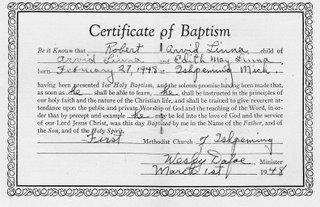 Certificate of Baptism
Be it Known that Robert Arvid Linna child of
Arvid Linna and Edith May Linna
born February 27, 1948 at Ishpeming Mich.
having been presented for Holy Baptism, and the solemn promise having been made that,
as soon as he shall be able to learn, he shall be instructed in the principles of
our holy faith and the nature of the Christian life, and shall be trained to give reverent at-
tendance upon the public and private Worship of God and the teaching of the Word, in or-
der that by precept and example he may be led into the love of God and the service
of our Lord Jesus Christ, was this day Baptized by me in the Name of the Father, and of
the Son, and of the Holy Spirit.
First Methodist Church of Ishpeming
Wesley Dafoe, Minister
March 1st 1948